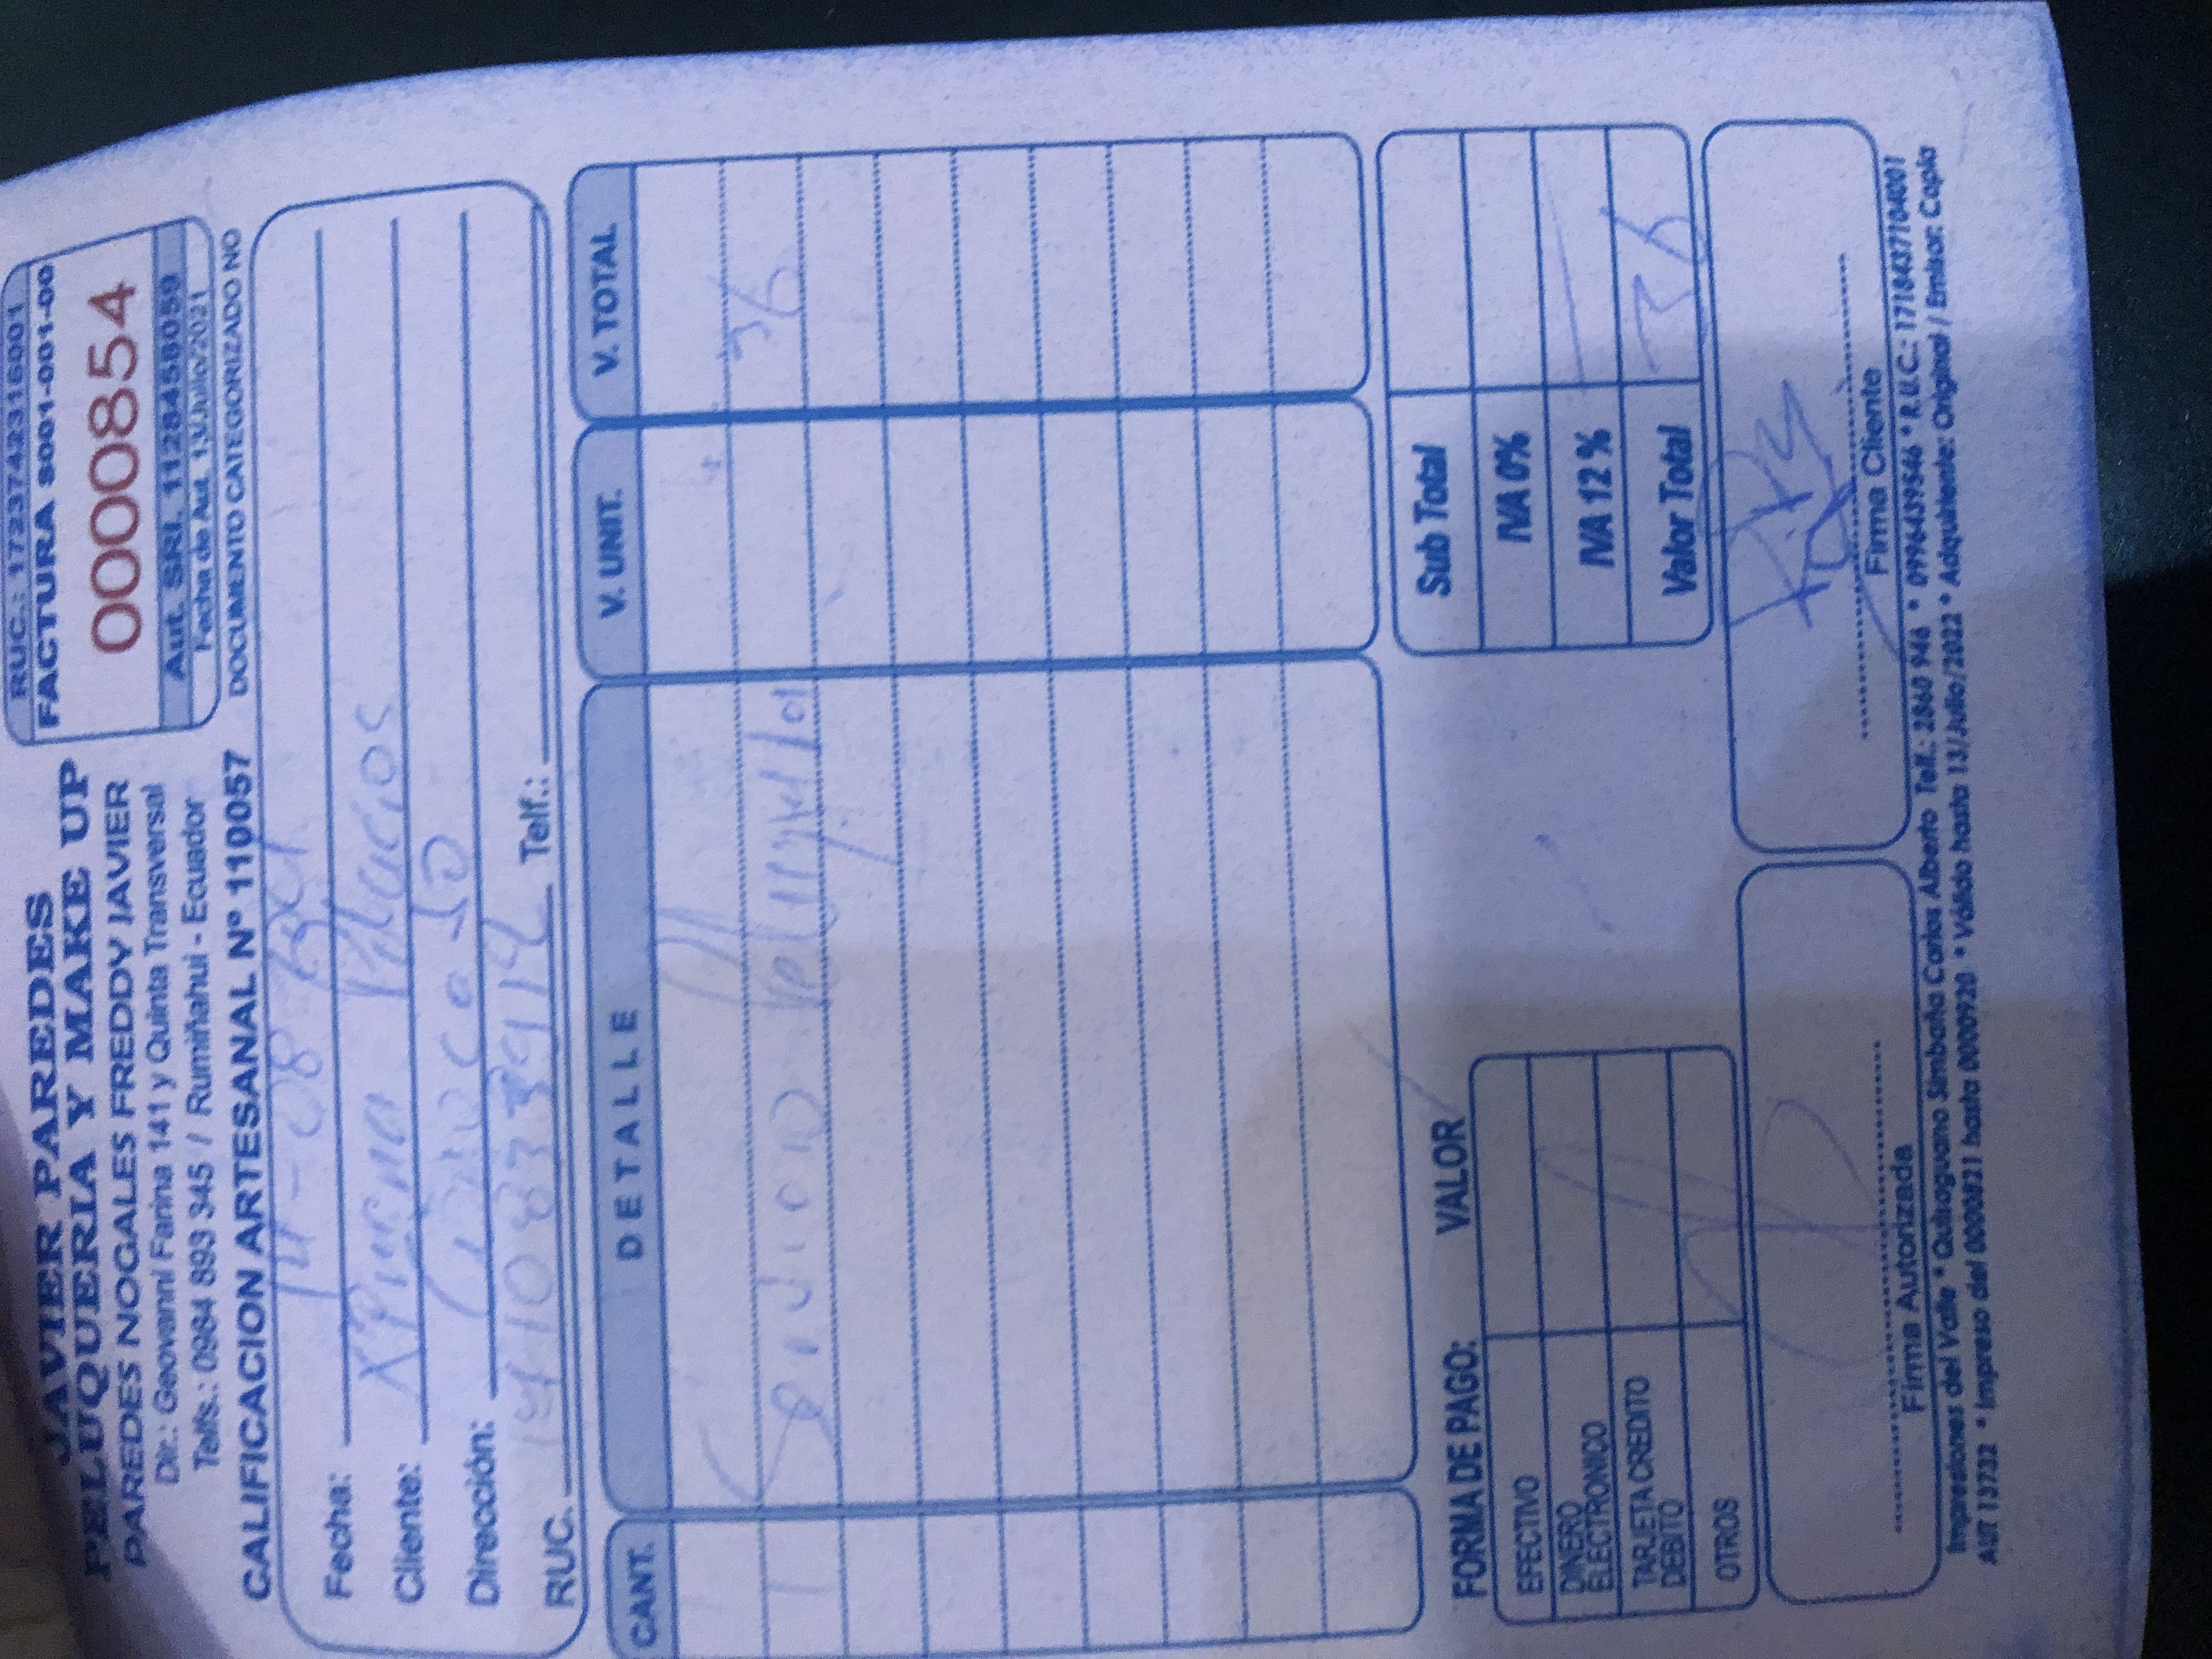 JAVIER PAREDES
PELUQUERIA Y MAKE UP
PAREDES NOGALES FREDDY JAVIER
Dir.: Geovanni Farina 141 y Quinta Transversal
Telfs.: 0984 893 345 / Rumiñahui - Ecuador
CALIFICACION ARTESANAL Nº 110057
RUC.: 1723742316001
FACTURA S001-001-00
0000854
Aut. SRI. 1128458059
Fecha de Aut. 13/Julio/2021
DOCUMENTO CATEGORIZADO NO
Fecha: 14-08-2021
Cliente: Ximena Palacios
Dirección:
RUC. Telf.:
CANT. DETALLE V. UNIT. V. TOTAL
1 Servicio 36
FORMA DE PAGO: VALOR
EFECTIVO
DINERO ELECTRONICO
TARJETA CREDITO DEBITO
OTROS
Sub Total
IVA 0%
IVA 12 %
Valor Total 36
Firma Autorizada
Firma Cliente
Impresiones del Valle * Quisaguano Simbaña Carlos Alberto Telf.: 2860 946 * 0996439546 * R.U.C.: 1718437104001
AUT 13732 * Impreso del 0000821 hasta 0000920 * Válido hasta 13/Julio/2022 * Adquiriente: Original / Emisor: Copia